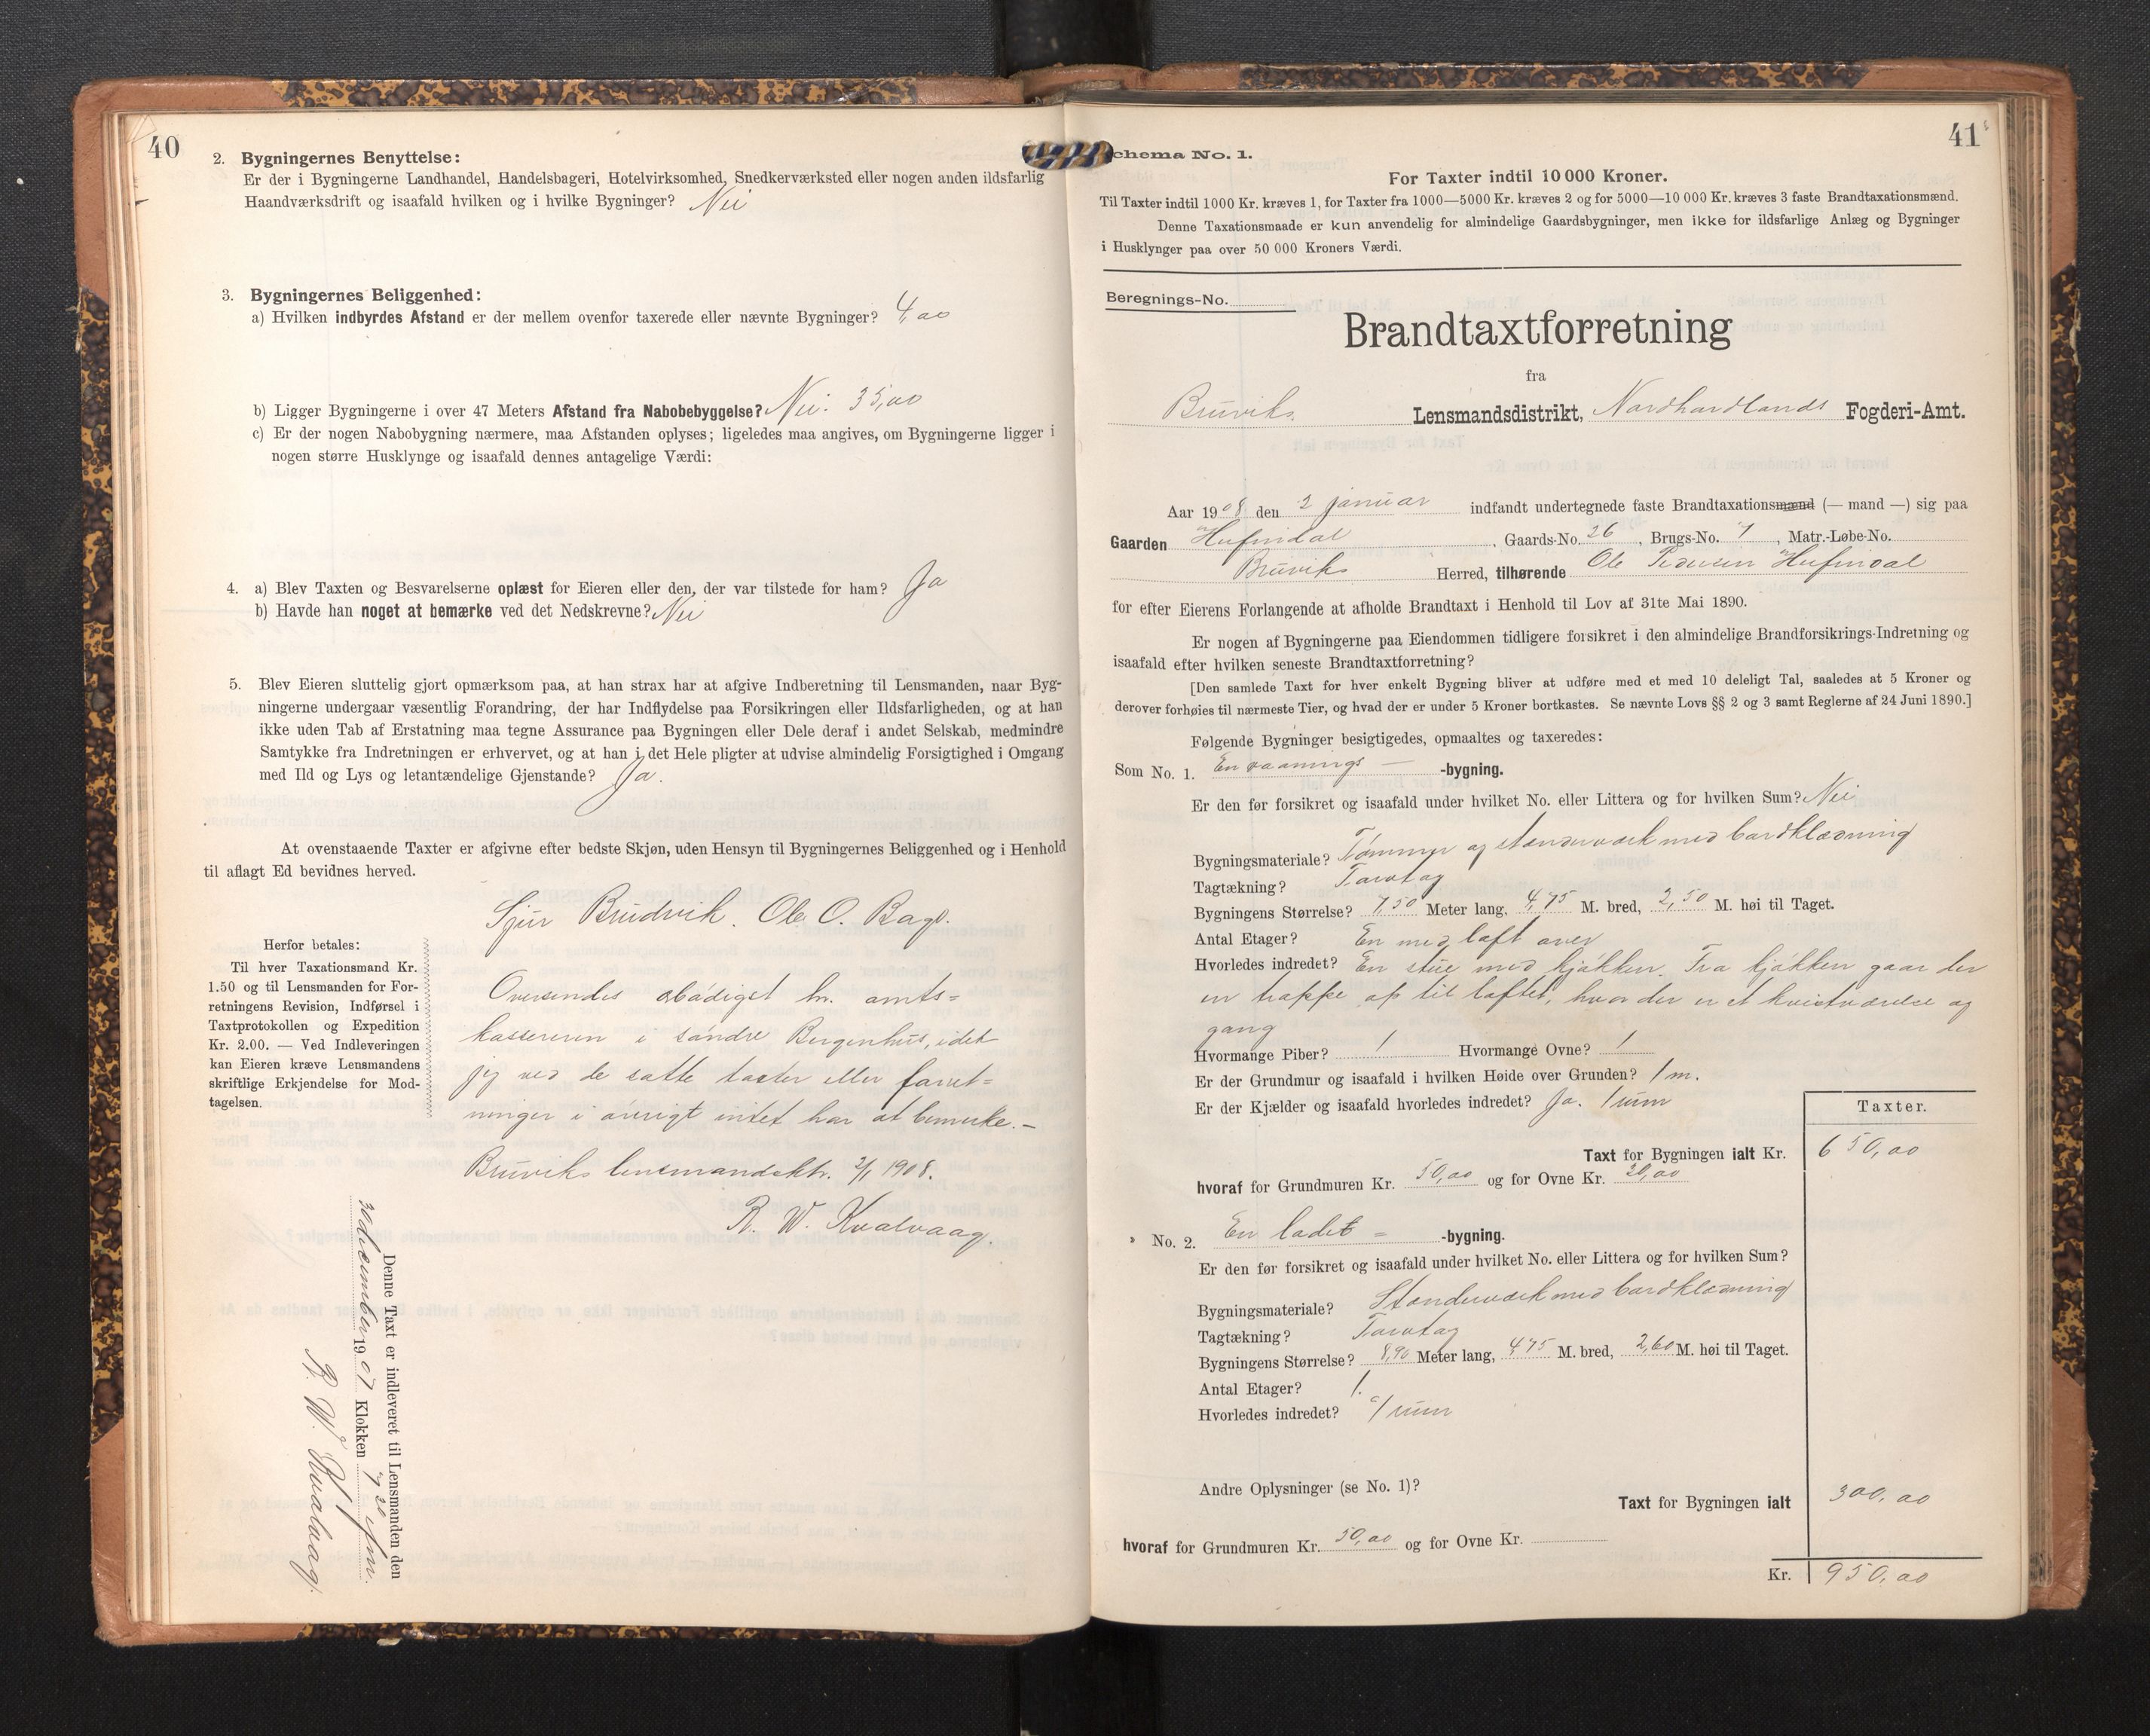 40
2. Bygningernes Benyttelse:
Er der i Bygningerne Landhandel, Handelsbageri, Hotelvirksomhed, Snedkerværksted eller nogen anden ildsfarlig
Haandværksdrift og isaafald hvilken og i hvilke Bygninger? Nei
3. Bygningernes Beliggenhed:
a) Hvilken indbyrdes Afstand er der mellem ovenfor taxerede eller nævnte Bygninger? 4,00
b) Ligger Bygningerne i over 47 Meters Afstand fra Nabobebyggelse? Nei. 35,00
c) Er der nogen Nabobygning nærmere, maa Afstanden oplyses; ligeledes maa angives, om Bygningerne ligger i
nogen større Husklynge og isaafald dennes antagelige Værdi:
4. a) Blev Taxten og Besvarelserne oplæst for Eieren eller den, der var tilstede for ham? Ja
b) Havde han noget at bemærke ved det Nedskrevne? Nei
5. Blev Eieren sluttelig gjort opmærksom paa, at han strax har at afgive Indberetning til Lensmanden, naar Byg-
ningerne undergaar væsentlig Forandring, der har Indflydelse paa Forsikringen eller Ildsfarligheden, og at han
ikke uden Tab af Erstatning maa tegne Assurance paa Bygningen eller Dele deraf i andet Selskab, medmindre
Samtykke fra Indretningen er erhvervet, og at han i det Hele pligter at udvise almindelig Forsigtighed i Omgang
med Ild og Lys og letantændelige Gjenstande? Ja.
At ovenstaaende Taxter er afgivne efter bedste Skjøn, uden Hensyn til Bygningernes Beliggenhed og i Henhold
til aflagt Ed bevidnes herved.
Sjur Brudvik. Ole O. Bage.
Herfor betales:
Til hver Taxationsmand Kr.
1.50 og til Lensmanden for For-
retningens Revision, Indførsel i
Taxtprotokollen og Expedition
Kr. 2.00. — Ved Indleveringen
kan Eieren kræve Lensmandens
skriftlige Erkjendelse for Mod-
tagelsen.
Oversendes ærbødigst hr. amts=
kassereren i søndre Bergenhus, idet
jeg ved de satte taxter eller forret=
ninger i øvrigt intet har at bemerke. —
Bruviks lensmandsktr. 3/1 1908.
R. W. Kvalvaag.
Denne Taxt er indleveret til Lensmanden den
30 december 1907 Klokken 7 20 fm.
R. W. Kvalvaag.
41
chema No. 1.
For Taxter indtil 10 000 Kroner.
Til Taxter indtil 1000 Kr. kræves 1, for Taxter fra 1000—5000 Kr. kræves 2 og for 5000—10 000 Kr. kræves 3 faste Brandtaxationsmænd.
Denne Taxationsmaade er kun anvendelig for almindelige Gaardsbygninger, men ikke for ildsfarlige Anlæg og Bygninger
i Husklynger paa over 50 000 Kroners Værdi.
Beregnings-No.
Brandtaxtforretning
fra
Bruviks Lensmandsdistrikt, Nordhordlands Fogderi-Amt.
Aar 1908 den 2 januar indfandt undertegnede faste Brandtaxationsmænd (— mand —) sig paa
Gaarden Hufindal, Gaards-No. 26, Brugs-No. 7, Matr.-Løbe-No.
Bruviks Herred, tilhørende Ole Pedersen Hufindal
for efter Eierens Forlangende at afholde Brandtaxt i Henhold til Lov af 31te Mai 1890.
Er nogen af Bygningerne paa Eiendommen tidligere forsikret i den almindelige Brandforsikrings-Indretning og
isaafald efter hvilken seneste Brandtaxtforretning?
[Den samlede Taxt for hver enkelt Bygning bliver at udføre med et med 10 deleligt Tal, saaledes at 5 Kroner og
derover forhøies til nærmeste Tier, og hvad der er under 5 Kroner bortkastes. Se nævnte Lovs §§ 2 og 3 samt Reglerne af 24 Juni 1890.]
Følgende Bygninger besigtigedes, opmaaltes og taxeredes:
Som No. 1. En vaanings — -bygning.
Er den før forsikret og isaafald under hvilket No. eller Littera og for hvilken Sum? Nei
Bygningsmateriale? Tømmer og stenderværk med bordklædning
Tagtækning? Torvtag
Bygningens Størrelse? 7,50 Meter lang, 4,75 M. bred, 2,50 M. høi til Taget.
Antal Etager? En med loft over
Hvorledes indredet? En stue med kjøkken. Fra kjøkken gaar der
en trappe op til loftet, hvor der er et kvistværelse og
gang
Hvormange Piber? 1 Hvormange Ovne? 1
Er der Grundmur og isaafald i hvilken Høide over Grunden? 1 m.
Er der Kjælder og isaafald hvorledes indredet? Ja. 1 rum
Taxter.
Taxt for Bygningen ialt Kr. 650,00
hvoraf for Grundmuren Kr. 50,00 og for Ovne Kr. 20,00
No. 2. En lade = -bygning.
Er den før forsikret og isaafald under hvilket No. eller Littera og for hvilken Sum?
Bygningsmateriale? Stenderværk med bordklædning
Tagtækning? Torvtag
Bygningens Størrelse? 8,90 Meter lang, 4,75 M. bred, 2,60 M. høi til Taget.
Antal Etager? 1.
Hvorledes indredet? 1 rum
Andre Oplysninger (se No. 1)?
Taxt for Bygningen ialt 300,00
hvoraf for Grundmuren Kr. 50,00 og for Ovne Kr.
Kr. 950,00